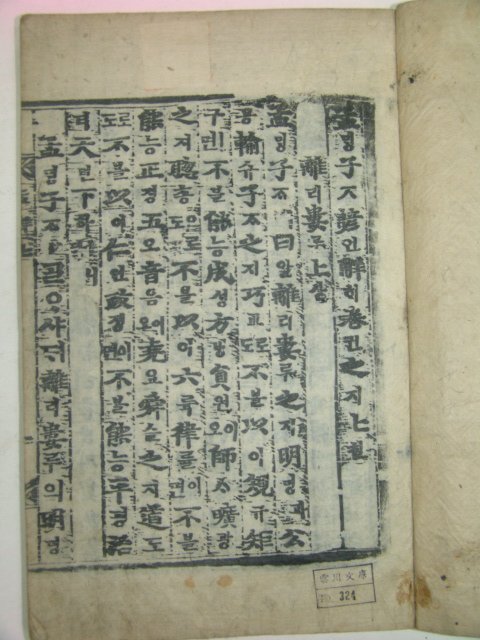 孟ᄆᆡᆼ子ᄌᆞ諺언解ᄒᆡ卷권之지七칠
離리婁루上샹
孟ᄆᆡᆼ子ᄌᆞㅣ曰왈離리婁루之지明명과公
공輸슈子ᄌᆞ之지巧교로도不블以이規규矩
구ㅣ면不블能능成셩方방員원이오師ᄉᆞ曠광
之지聰총으로도不블以이六륙律률이면不블
能능正졍五오音음이오堯요舜슌之지道도
로도不블以이仁인政졍이면不블能능平평治
티天텬下하ㅣ니라
孟ᄆᆡᆼ子ᄌᆞㅣᄀᆞᆯᄋᆞ샤ᄃᆡ離리婁루의明명
文庫
No. 324